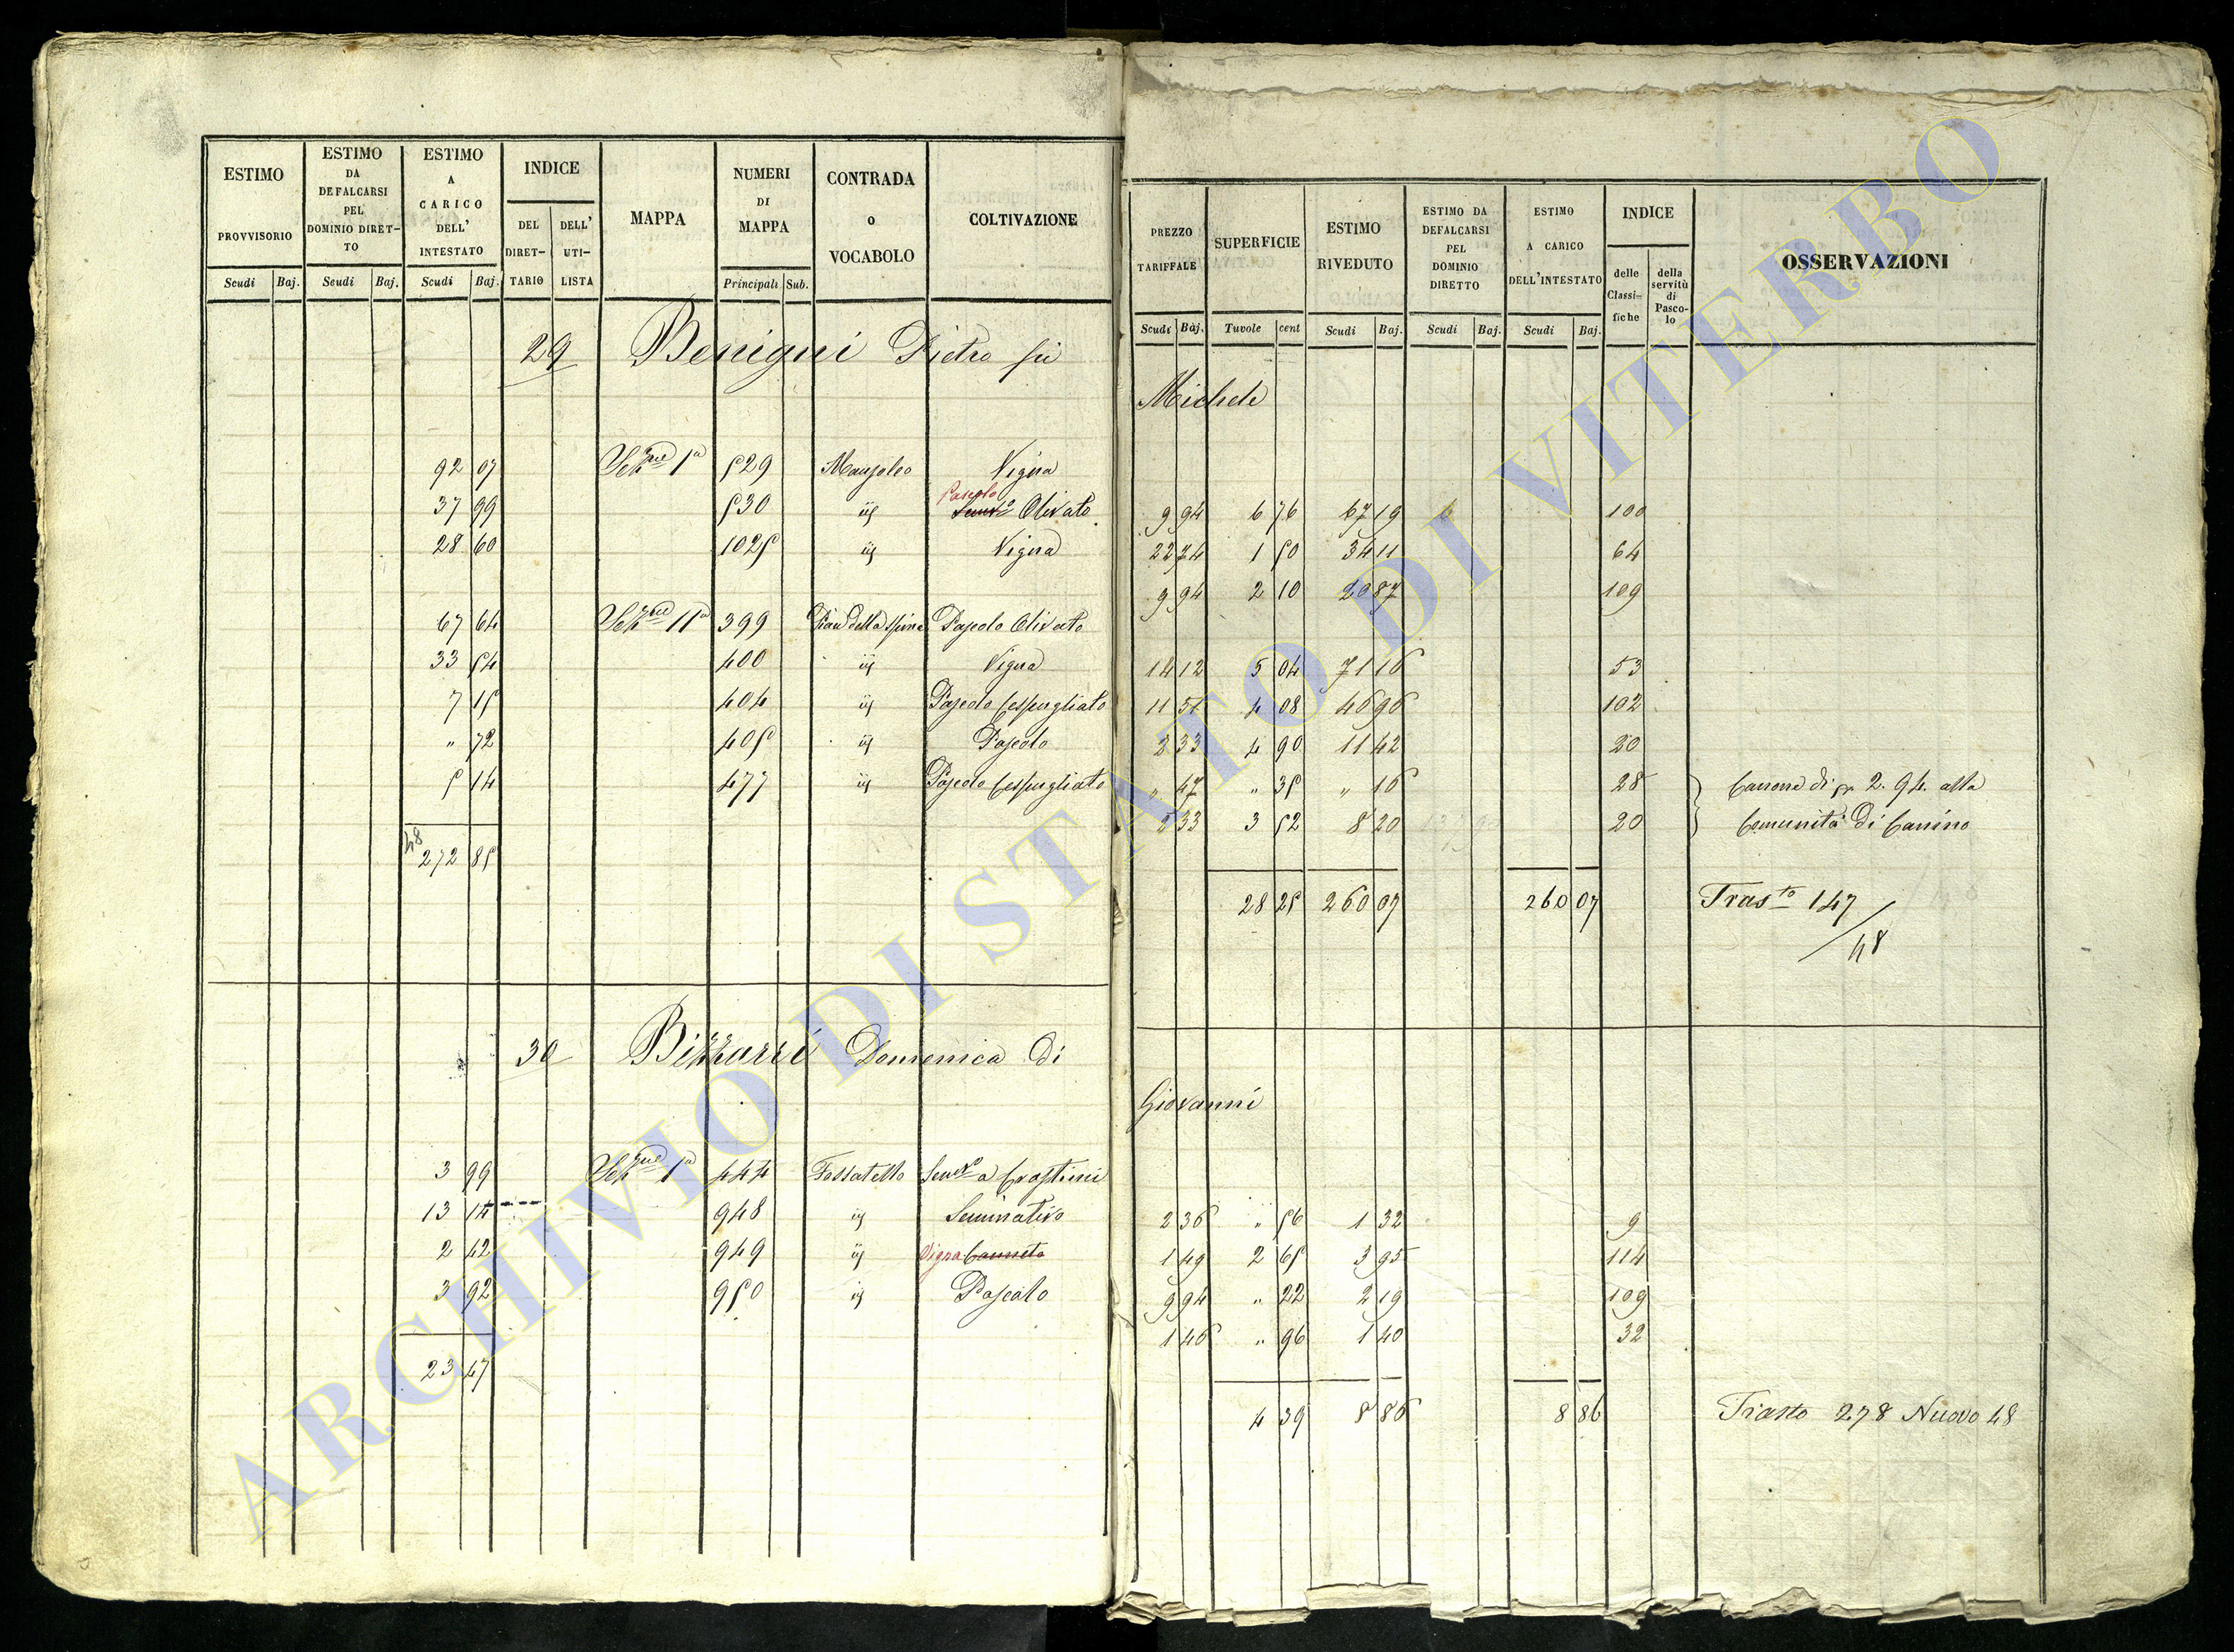 ESTIMO PROVVISORIO Scudi Baj.
ESTIMO DA DEFALCARSI PEL DOMINIO DIRET-TO Scudi Baj.
ESTIMO A CARICO DELL' INTESTATO Scudi Baj.
INDICE DEL DIRET-TARIO DELL' UTI-LISTA
MAPPA
NUMERI DI MAPPA Principali Sub.
CONTRADA o VOCABOLO
COLTIVAZIONE
29 Benigni Pietro fù
92 07 Sez.ne 1a 529 Mausoleo Vigna
Pascolo
37 99 530 iij Semvo Olivato
28 60 1025 iij Vigna
67 64 Sez.ne 11a 399 Pian della Spina Pascolo Olivato
33 54 400 iij Vigna
7 15 404 iij Pascolo Cespugliato
" 72 405 iij Pascolo
5 14 477 iij Pascolo Cespugliato
48
272 85
30 Bizzarri Domenica di
3 99 Sez.ne 1a 444 Fossatello Semvo a Crostini
13 14 948 iij Seminativo
2 42 949 iij Vigna Canneto
3 92 950 iij Pascolo
23 47
PREZZO TARIFFALE Scudi Baj.
SUPERFICIE Tavole cent
ESTIMO RIVEDUTO Scudi Baj.
ESTIMO DA DEFALCARSI PEL DOMINIO DIRETTO Scudi Baj.
ESTIMO A CARICO DELL'INTESTATO Scudi Baj.
INDICE delle Classi-fiche della servitù di Pasco-lo
OSSERVAZIONI
Michele
9 94 6 76 67 19 100
22 74 1 50 34 11 64
9 94 2 10 20 87 109
14 12 5 04 71 16 53
11 51 4 08 46 96 102
2 33 4 90 11 42 20
" 47 " 35 " 16 28 Canone di sc. 2. 94. alla
2 33 3 52 8 20 20 Comunità di Canino
28 25 260 07 260 07 Trasto 147
/48
Giovanni
2 36 " 56 1 32 9
1 49 2 65 3 95 114
9 94 " 22 2 19 109
1 46 " 96 1 40 32
4 39 8 86 8 86 Trasto 278 Nuovo 48
ARCHIVIO DI STATO DI VITERBO